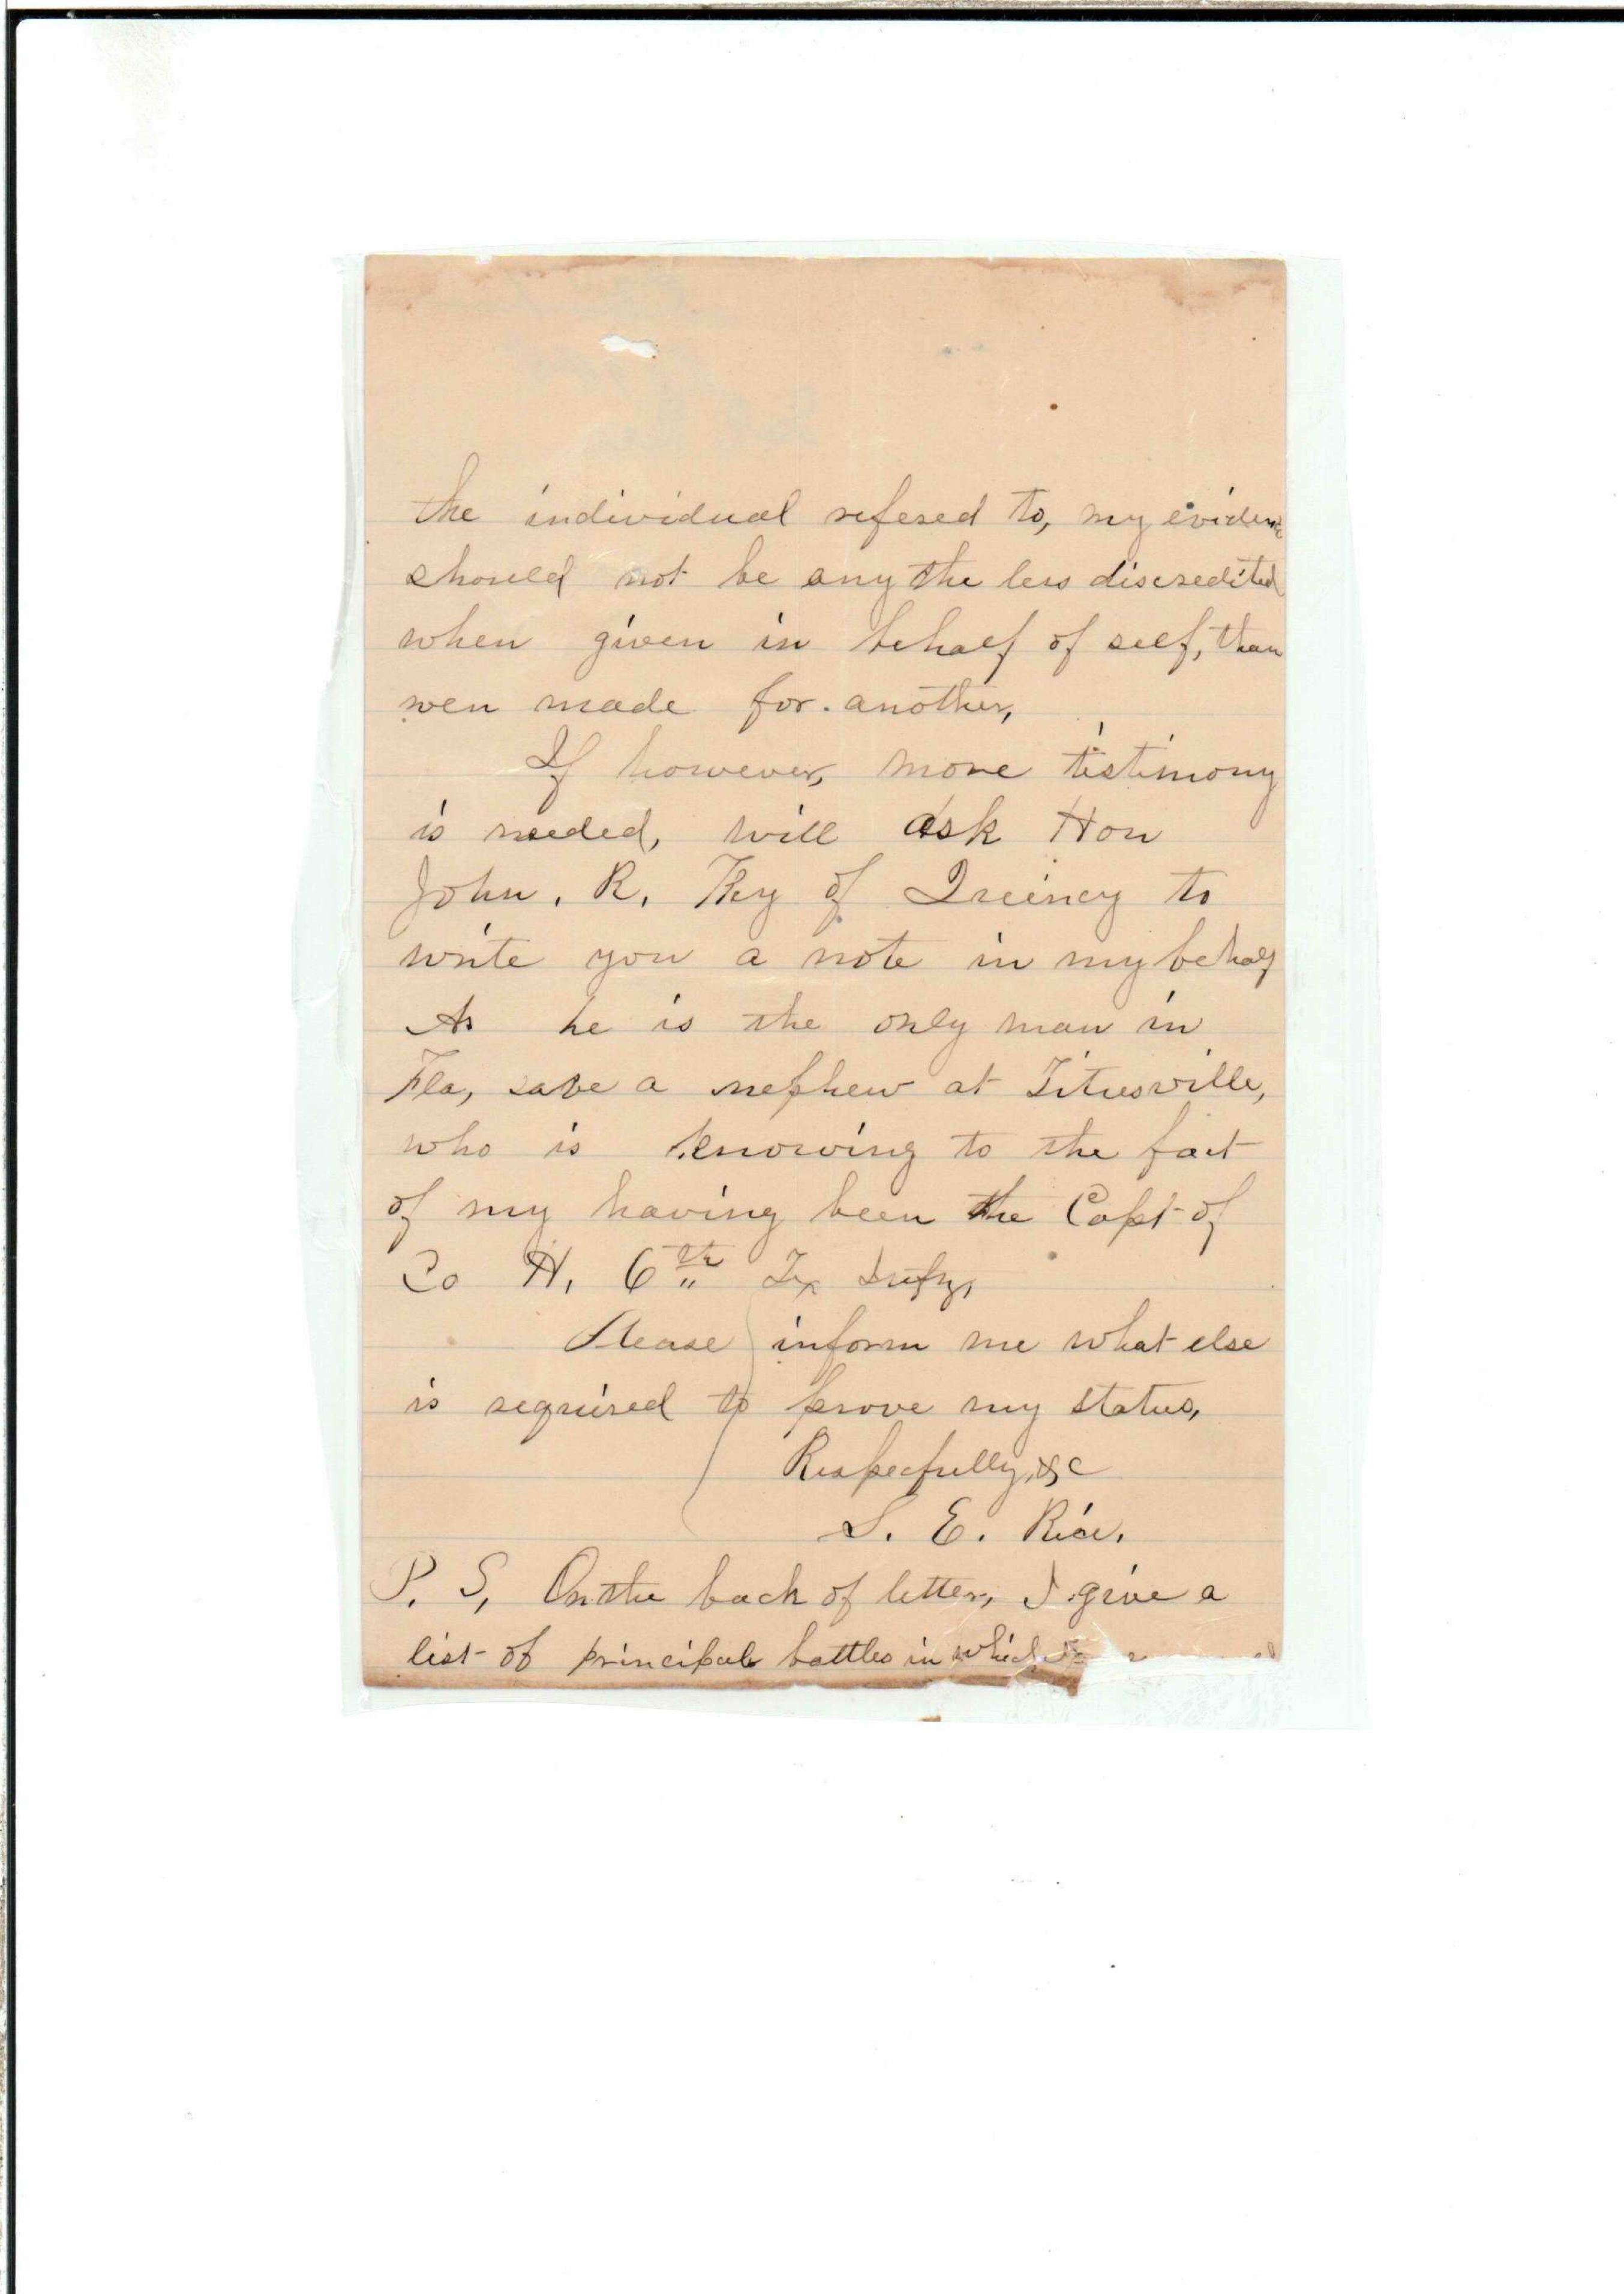 the individual refered to, my evidence
should not be any the less discredited
when given in behalf of self, than
wen made for. another,
If however, more testimony
is needed, will ask Hon
John. R. Key of Quincy to
write you a note in my behalf
As he is the only man in
Fla, save a nephew at Titusville,
who is knowing to the fact
of my having been the Capt of
Co H, 6th Tx Infy,
Please inform me what else
is required to prove my status,
Respecfully, &c
S. E. Rice.
P. S, On the back of letter, I give a
list of principal battles in which